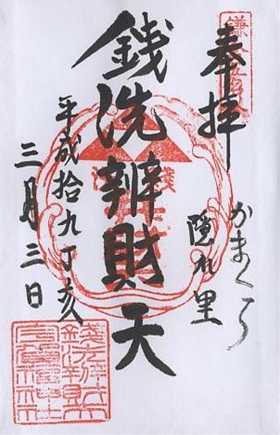 奉拝
かまくら
隠れ里
銭洗辨財天
平成拾九丁亥
三月三日